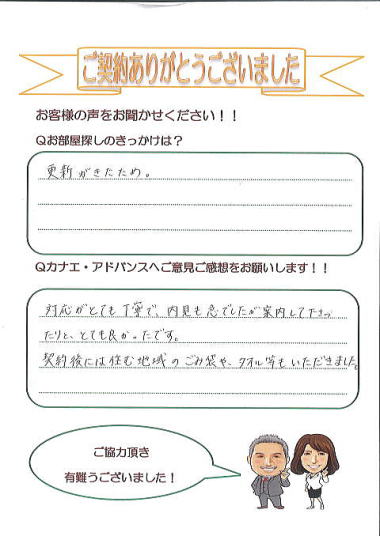 ご契約ありがとうございました
お客様の声をお聞かせください！！
Qお部屋探しのきっかけは？
更新がきたため。
Qカナエ・アドバンスへご意見ご感想をお願いします！！
対応がとても丁寧で、内見も急でしたが案内して下さっ
たりと、とても良かったです。
契約後には住む地域のごみ袋や、タオル等もいただきました。
ご協力頂き
有難うございました！